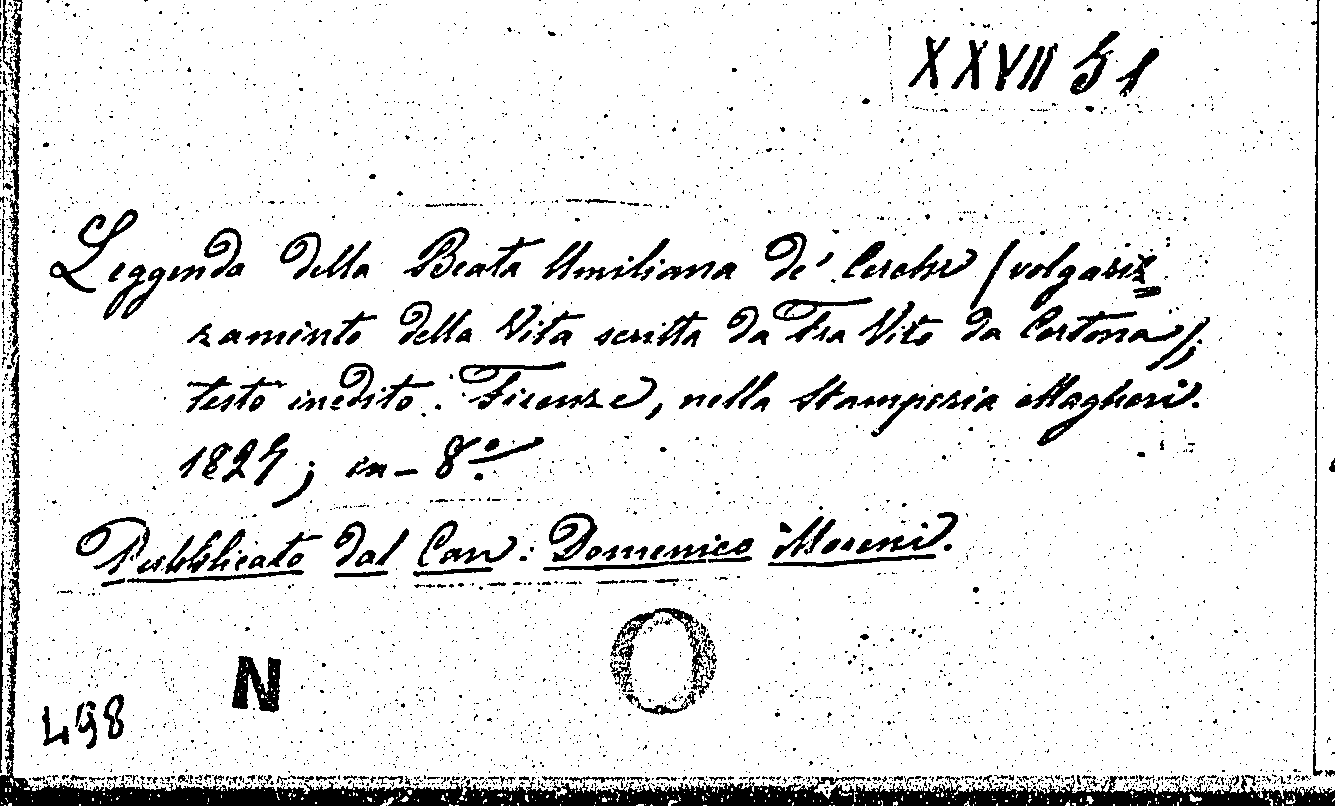 XXVII 51
Leggenda della Beata Umiliana de' Cerchi (volgariz=
zamento della Vita scritta da Fra Vito da Cortona);
testo inedito. Firenze, nella Stamperia Magheri.
1827; in-8º.
Pubblicato dal Can: Domenico Moreni.
N
O
498